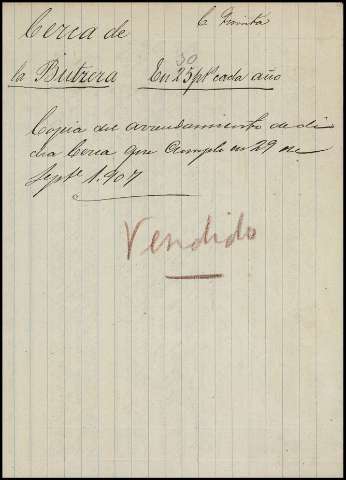 Cerca de
la Butrera
30
En 25 pts cada año
Copia del arrendamiento de di
cha Cerca que Cumple en 29 de
Septe 1.907
Vendido